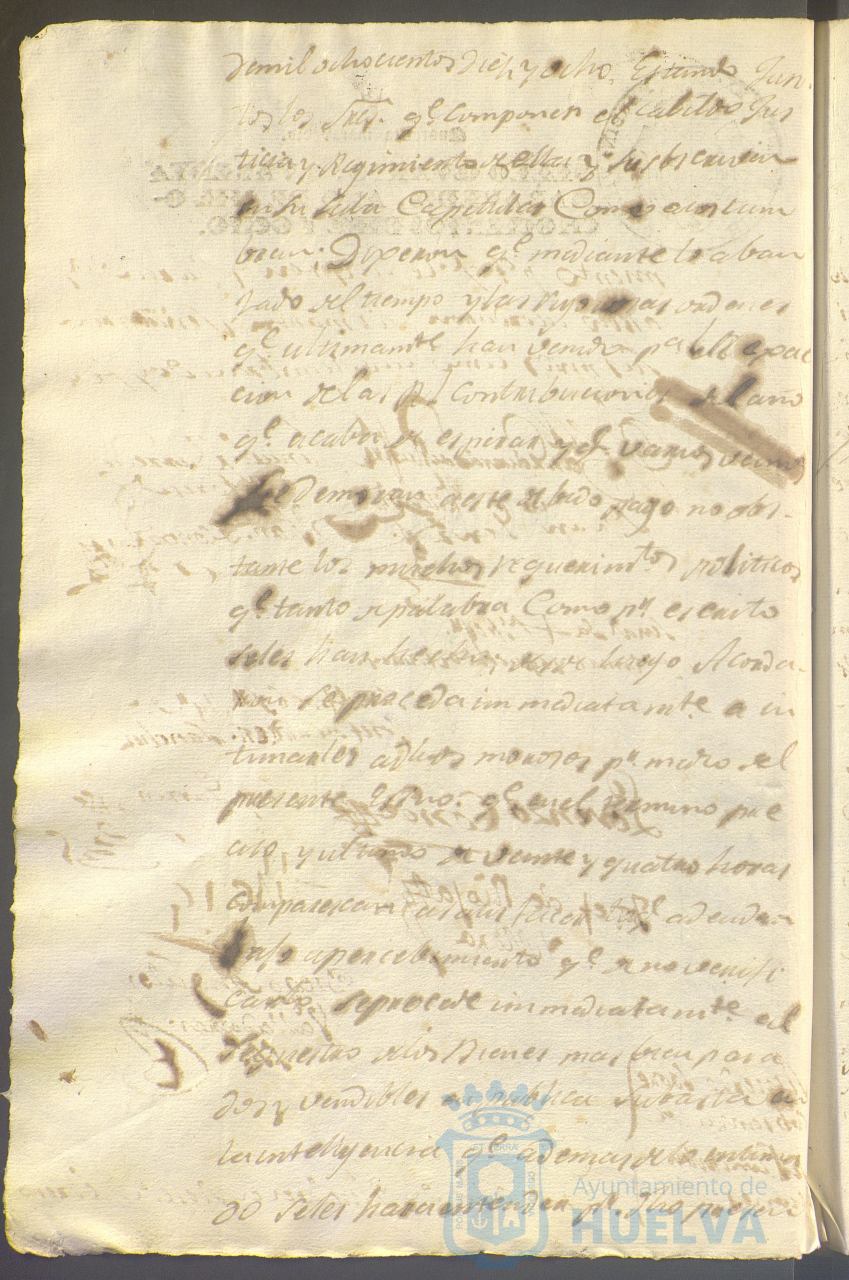 demil ochocientos diez y ocho, Estando Jun-
tos los Sres. q.e componen el cabildo, Jus
ticia y Regimiento de ella q.e subscriven
en su sala Capitular Como acostum
bran. Dixeron q.e mediante lo aban
zado del tiempo y las ordenes
q.e ultimam.te han venido p.a
cion de las R.s Contribuciones del año
q.e acaba de espirar y q.e varios vecinos
se demoran a este debido pago no obs-
tante los muchos requerim.tos politicos
q.e tanto de palabra Como p.r escrito
seles han hecho, desde luego Acorda-
ron se proceda immediatam.te a in
timarles a dhos morosos p.r medio del
presente Essno. q.e en el termino pre
ciso, y ultimo de veinte y quatro horas
comparescan a satisfacer lo q.e adeudan
vajo apercebimiento q.e de no verifi
carlo, se procede immediatam.te al
sequestro de los Bienes mas bien para
dos y vendibles en publica subasta en
la inteligencia q.e ademas de lo intima
do seles hara entender p.r dho
Ayuntamiento de
HUELVA